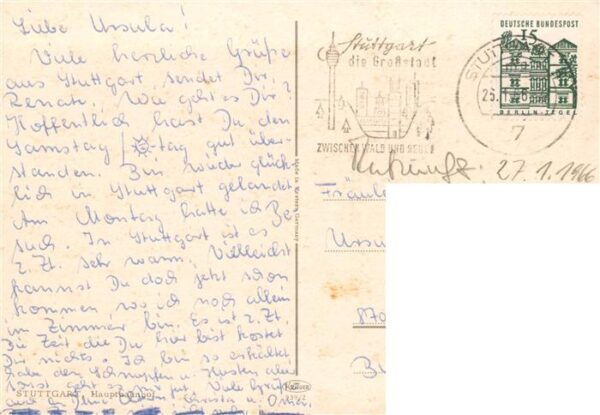 Liebe Ursula!
Viele herzliche Grüße
aus Stuttgart sendet Dir
Renate. Wie geht es Dir?
Hoffentlich hast Du den
Samstag -tag gut über-
standen. Bin wieder glück-
lich in Stuttgart gelandet.
Am Montag hatte ich Be
such. In Stuttgart ist es
z. Zt. sehr warm. Vielleicht
kannst Du doch jetzt schon
kommen, wo ich noch allein
im Zimmer bin. Es ist z. Zt.
die Zeit die Du hier bist kostet
Dir nichts. Ich bin so erkältet
habe den Schnupfen u. Husten aber
sonst geht es mir gut. Viele Grüße
auch an Deine u. Oma.
STUTTGART, Hauptbahnhof
Stuttgart
die Großstadt
ZWISCHEN WALD UND REBEN
STUTT
7
DEUTSCHE BUNDESPOST
15
BERLIN-TEGEL
27.1.1966
Fräule
Ursu
870
Krüger